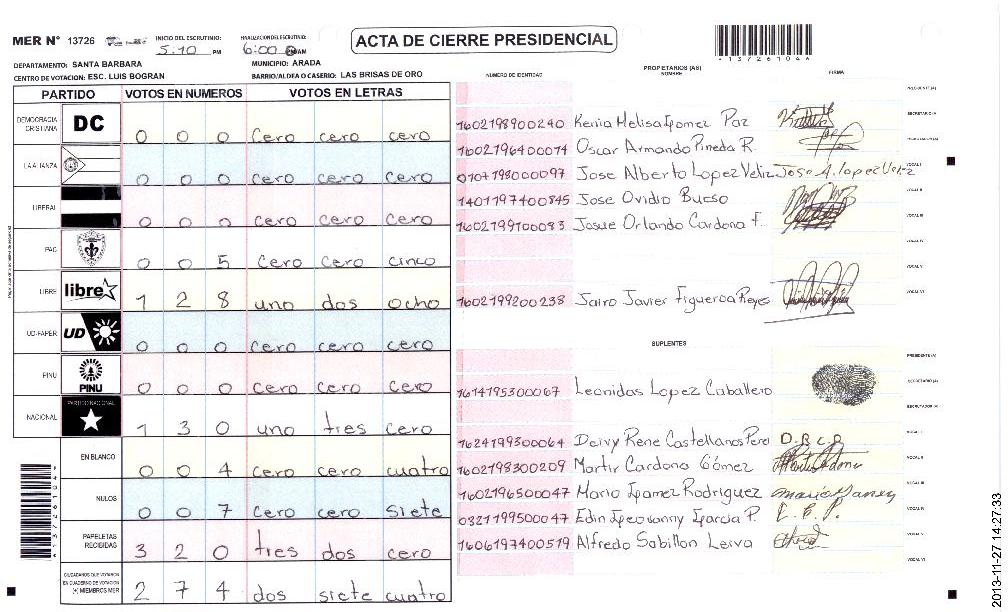 MER N° 13726
INICIO DEL ESCRUTINIO:
5:10 PM
FINALIZACION DEL ESCRUTINIO:
6:00 PM/AM
ACTA DE CIERRE PRESIDENCIAL
DEPARTAMENTO: SANTA BARBARA
MUNICIPIO: ARADA
CENTRO DE VOTACION: ESC. LUIS BOGRAN
BARRIO/ALDEA O CASERIO: LAS BRISAS DE ORO
PARTIDO VOTOS EN NUMEROS VOTOS EN LETRAS
DEMOCRACIA CRISTIANA DC 0 0 0 Cero cero cero
LA ALIANZA 0 0 0 Cero cero cero
LIBERAL 0 0 0 Cero cero cero
PAC 0 0 5 Cero cero cinco
LIBRE libre 1 2 8 uno dos ocho
UD-FAPER UD 0 0 0 Cero cero cero
PINU PINU 0 0 0 Cero cero cero
NACIONAL PARTIDO NACIONAL 1 3 0 uno tres cero
EN BLANCO 0 0 4 cero cero cuatro
NULOS 0 0 7 cero cero siete
PAPELETAS RECIBIDAS 3 2 0 tres dos cero
CIUDADANOS QUE VOTARON EN CUADERNO DE VOTACION (+) MIEMBROS MER 2 7 4 dos siete cuatro
NUMERO DE IDENTIDAD
PROPIETARIOS (AS)
NOMBRE
FIRMA
1602198900240 Kenia Melisa Gomez Paz
1602196400074 Oscar Armando Pineda R.
Jose Alberto Lopez Veliz Jose A. lopez Veliz
1401197400845 Jose Ovidio Bueso
1602199100083 Josue Orlando Cardona F.
1602199200238 Jairo Javier Figueroa Reyes
SUPLENTES
1614195300067 Leonidas Lopez Caballero
1624199300064 Deivy Rene Castellanos D.R.C.P
1602198300209 Martir Cardona Gómez
1602196500047 Mario Gamez Rodriguez
0321199500047 Edin Geovanny Garcia P.
1606197400519 Alfredo Sabillon Leiva
PRESIDENTE (A)
SECRETARIO (A)
ESCRUTADOR (A)
VOCAL I
VOCAL II
VOCAL III
VOCAL IV
VOCAL V
VOCAL VI
2013-11-27 14:27:33